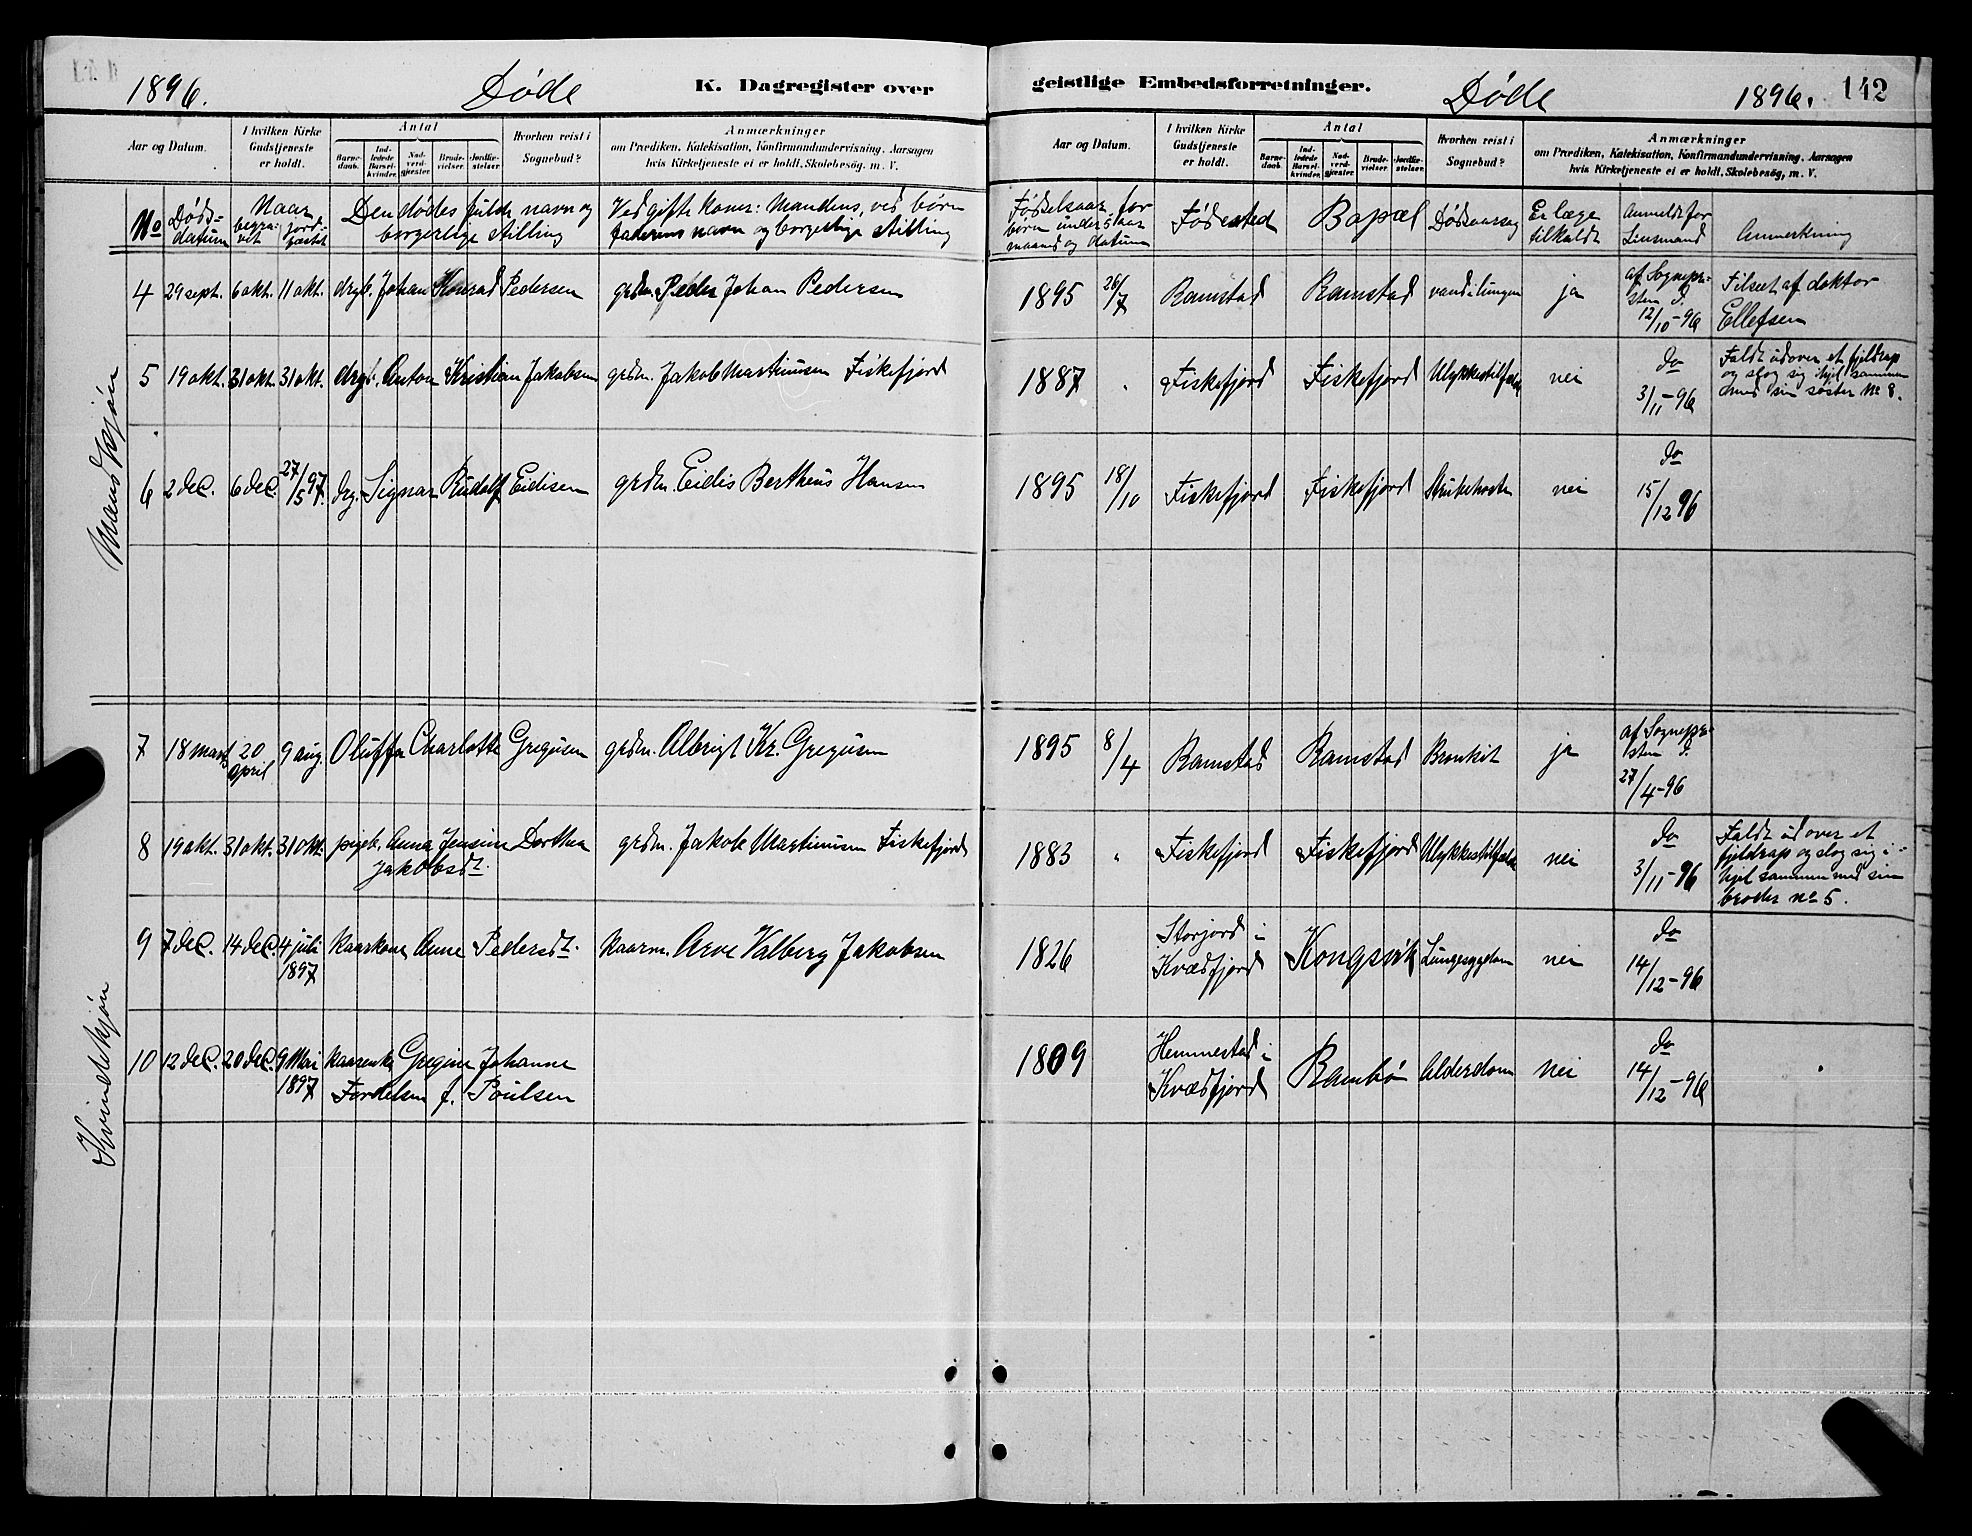 1896. Døde K. Dagregister over geistlige Embedsforretninger. Døde 1896. 142
Aar og Datum. I hvilken Kirke Gudstjeneste er holdt. Antal Barnedaab. Indledede Barselkvinder. Nadverdgjæster Brudevielser Jordfæstelser Hvorhen reist i Sognebud? Anmærkninger om Prædiken, Katekisation, Konfirmandundervisning, Aarsagen hvis Kirketjeneste ei er holdt, Skolebesøg, m. V.
Aar og Datum. I hvilken Kirke Gudstjeneste er holdt. Antal Barnedaab. Indledede Barselkvinder. Nadverdgjæster Brudevielser Jordfæstelser Hvorhen reist i Sognebud? Anmærkninger om Prædiken, Katekisation, Konfirmandundervisning, Aarsagen hvis Kirketjeneste ei er holdt, Skolebesøg, m. V.
No Dødsdatum Naar begravet jordfæstet Den dødes fulde navn og borgerlige stilling Ved gifte koner: Mandens, ved børn faderens navn og borgerlige stilling Fødselsaar, for børn under 5 aar maaned og datum Fødested Bopæl Dødsaarsag Er læge tilkaldt Anmeldt for Linsmand Anmerkning
Mandkjøn
4 29 sept. 6 okt. 11 okt. drgb. Johan Konrad Pedersen grdm. Peder Johan Pedersen 1895 26/7 Ramstad Ramstad vand i lungen ja af Sognepresten d. 12/10-96 Tilseet af doktor Ellefsen
5 19 okt. 31 okt. 31 okt. drgb. Anton Kristian Jakobsen grdm. Jakob Martinusen Fiskefjord 1887 " Fiskefjord Fiskefjord Ulykkestilfælde nei do 3/11-96 Faldt udover et fjeldrap og slog sig ihjel sammen med sin søster No 8.
6 2 dec. 6 dec. 27/5 97. drg. Signar Rudolf Eidisen grdm. Eidis Bertheus Hansen 1895 18/10 Fiskefjord Fiskefjord Strubehoste nei do 15/12 96
Kvindekjøn
7 18 marts 20 april 9 aug. Oluffa Charlotte Gregusen grdm. Albrigt Kr. Gregusen 1895 8/4 Ramstad Ramstad Bronkit ja af Sognepresten d. 27/4-96
8 19 okt. 31 okt. 31 okt. pigeb. Anna Jensine Dorthea Jakobsdt. grdm. Jakob Martinusen Fiskefjord 1883 " Fiskefjord Fiskefjord Ulykkestilfælde nei do 3/11-96 Faldt udover et fjeldrap og slog sig ihjel sammen med sin broder no 5.
9 7 dec. 14 dec. 4 juli 1897 kaarkone Anne Pedersdt. kaarm. Arve Valberg Jakobsen 1826 Storjord i Kvædfjord Kongsvik Lungesygdom nei do 14/12-96
10 12 dec. 20 dec. 9 Mai 1897 kaarenke Gregine Johanne Fordelsen f. Poulsen 1809 Hemmestad i Kvædfjord Rambø Alderdom nei do 14/12-96